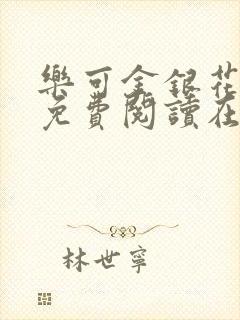 樂可金銀花
免費閱讀在
林世寧